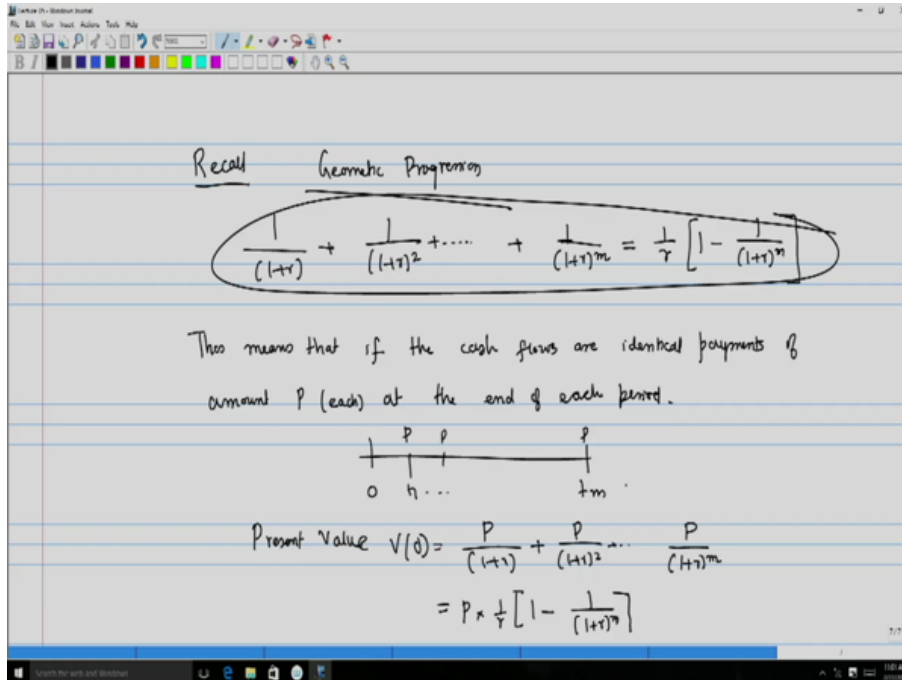 Lecture 05 - Windows Journal
File Edit View Insert Actions Tools Help
B I
Recall Geometric Progression
1/(1+r) + 1/(1+r)^2 + ..... + 1/(1+r)^m = 1/r [1 - 1/(1+r)^n]
This means that if the cash flows are identical payments of
amount P (each) at the end of each period.
P P P
0 ... tm
Present Value V(0) = P/(1+r) + P/(1+r)^2 ... P/(1+r)^m
= P x 1/r [1 - 1/(1+r)^n]
7/7
Search the web and Windows